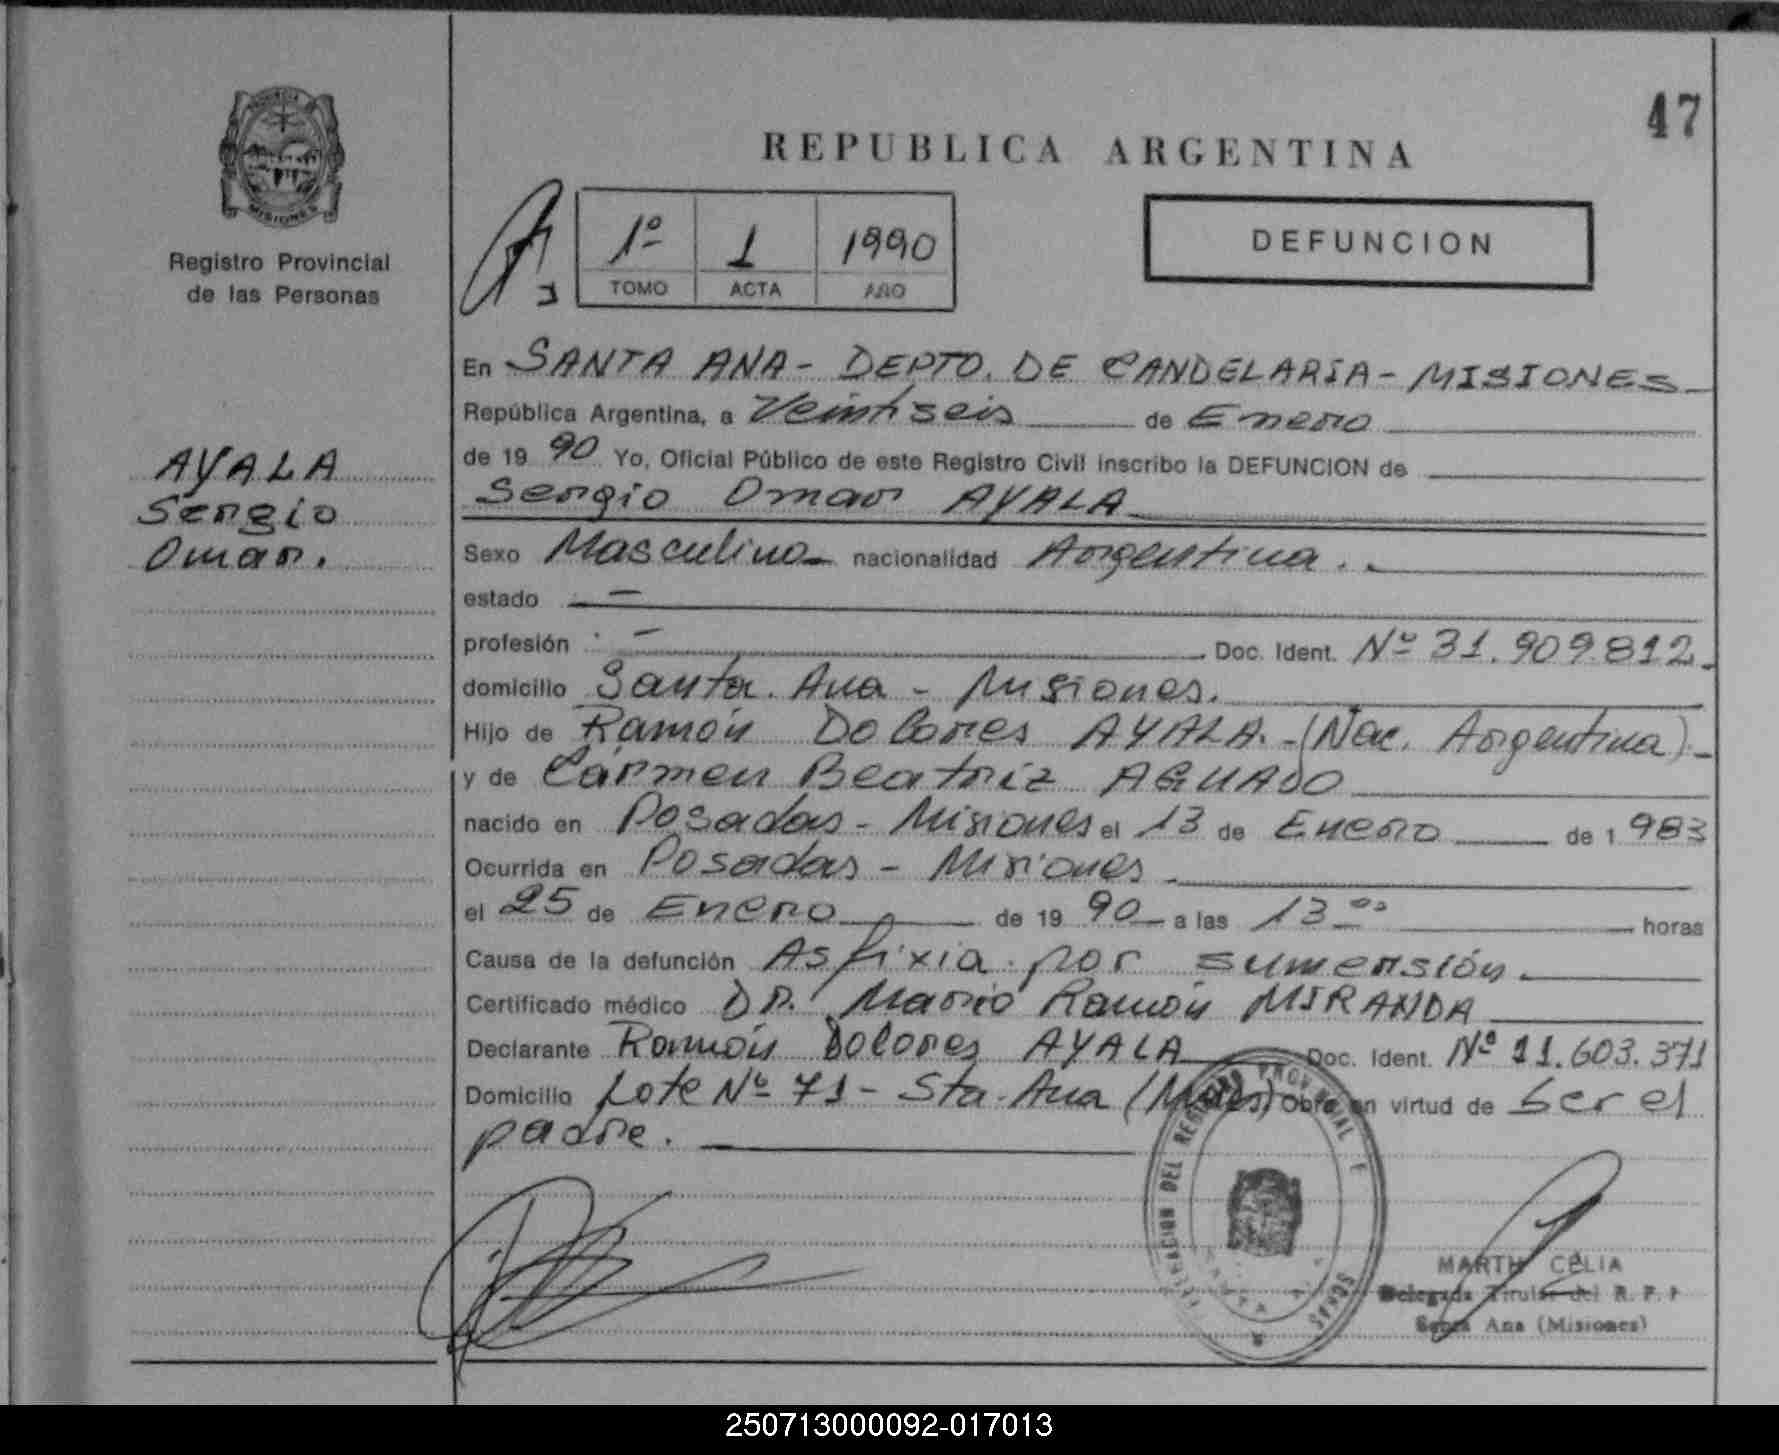 47
PROVINCIA
MISIONES
Registro Provincial
de las Personas
REPUBLICA ARGENTINA
1º 1 1990
TOMO ACTA AÑO
DEFUNCION
En SANTA ANA - DEPTO. DE CANDELARIA - MISIONES
República Argentina, a Veintiseis de Enero
de 19 90 Yo, Oficial Público de este Registro Civil inscribo la DEFUNCION de
Sergio Omar AYALA
AYALA
Sergio
Omar.
Sexo Masculino nacionalidad Argentina.
estado —
profesión — Doc. Ident. Nº 31.909.812.
domicilio Santa Ana - Misiones.
Hijo de Ramón Dolores AYALA. - (Nac. Argentina) -
y de Cármen Beatriz AGUADO
nacido en Posadas - Misiones el 13 de Enero de 1 983
Ocurrida en Posadas - Misiones
el 25 de Enero de 19 90 a las 13 ºº horas
Causa de la defunción Asfixia por sumersión.
Certificado médico Dr. Mario Ramón MIRANDA
Declarante Ramón Dolores AYALA Doc. Ident. Nº 11.603.371
Domicilio Lote Nº 71 - Sta. Ana (Mnes) Obra en virtud de ser el
padre.
DEL REGISTRO PROVINCIAL
MARTA CELIA
Delegada Titular del R. P. P
Santa Ana (Misiones)
250713000092-017013